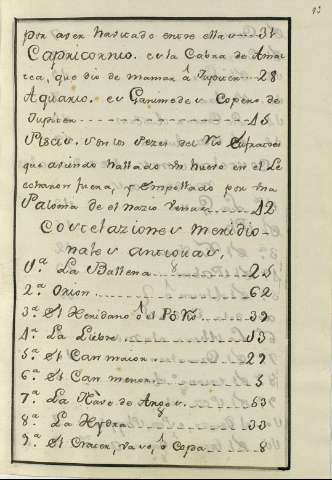 13
por aver havitado entre ellas---31
Capricornio. es la Cabra de Amal
tea, que dio de mamar â Jupiter---28
Aquario. es Ganimedes Copero de
Jupiter---45
Piscis. son los Pezes del Rio Eufrates
que aviendo hallado un huevo en el Le
echaron fuera, y Empollado por una
Paloma de el nazio Venus---42
Costelaziones meridio-
nales antiguas,
1ª. La Ballena---25
2ª. Orion---62
3ª El Heridano ô el Pô Rio---32
4ª. La Liebre---13
5ª El Can maior---29
6ª. El Can menor---5
7ª La Nave de Argos---53
8ª. La Hydra---33
9ª. El Crater, vaso, ô Copa---8